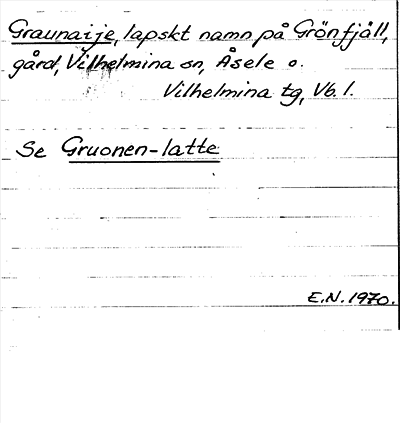 Graunaije, lapskt namn på Grönfjäll,
gård, Vilhelmina sn, Åsele o.
Vilhelmina tg, Vb. l.
Se Gruonen-latte
E.N. 1970.